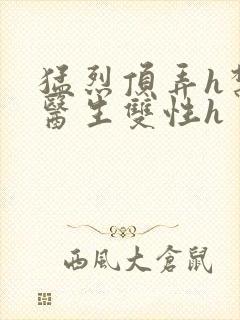 猛烈頂弄h
醫生雙性h
西風大倉鼠